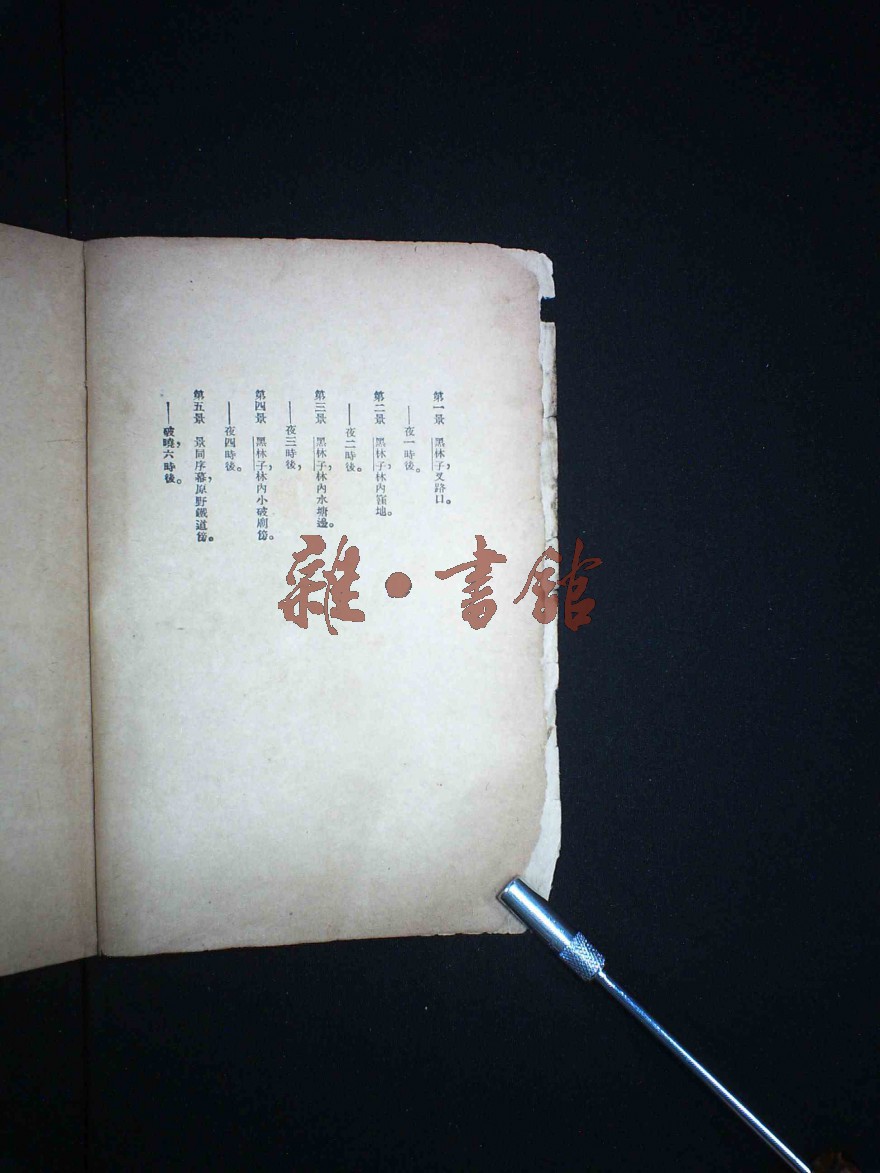 第一景　黑林子，叉路口。
——夜一時後。
第二景　黑林子，林內窪地。
——夜二時後。
第三景　黑林子，林內水塘邊。
——夜三時後，
第四景　黑林子，林內小破廟傍。
——夜四時後。
第五景　景同序幕，原野鐵道傍。
——破曉，六時後。
雜・書館